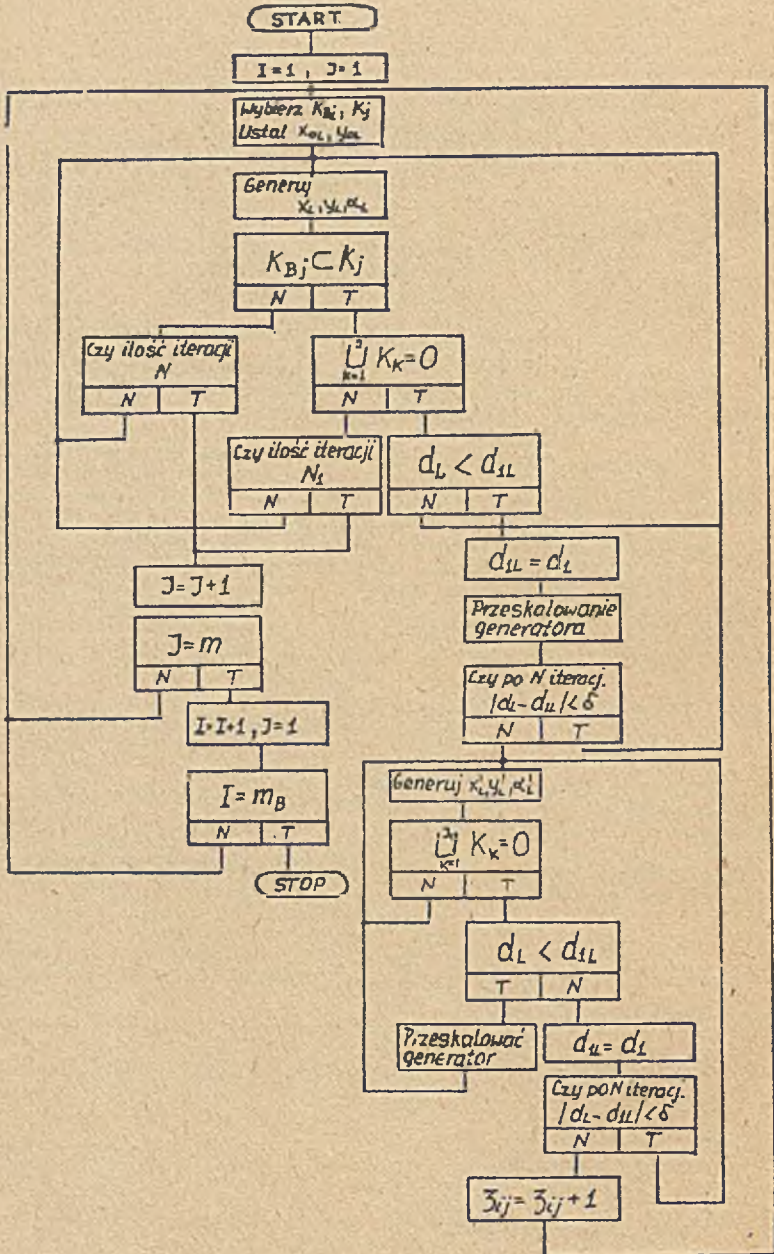 START
I=1 , J=1
Wybierz K_Bj, K_j
Ustal x_oL, y_oL
Generuj
x_L, y_L, α_L
K_Bj ⊂ K_j
N T
Czy ilość iteracji
N
N T
K_K=0
N T
Czy ilość iteracji
N_1
N T
d_L < d_1L
N T
d_1L = d_L
Przeskalowanie
generatora
J=J+1
J=m
N T
Czy po N iteracj.
|d_L - d_1L| < δ
N T
I=I+1, J=1
I=m_B
N T
STOP
Generuj x'_L, y'_L, α'_L
K_K=0
N T
d_L < d_1L
T N
Przeskalować
generator
d_1L = d_L
Czy po N iteracj.
|d_L - d_1L| < δ
N T
3_ij = 3_ij + 1